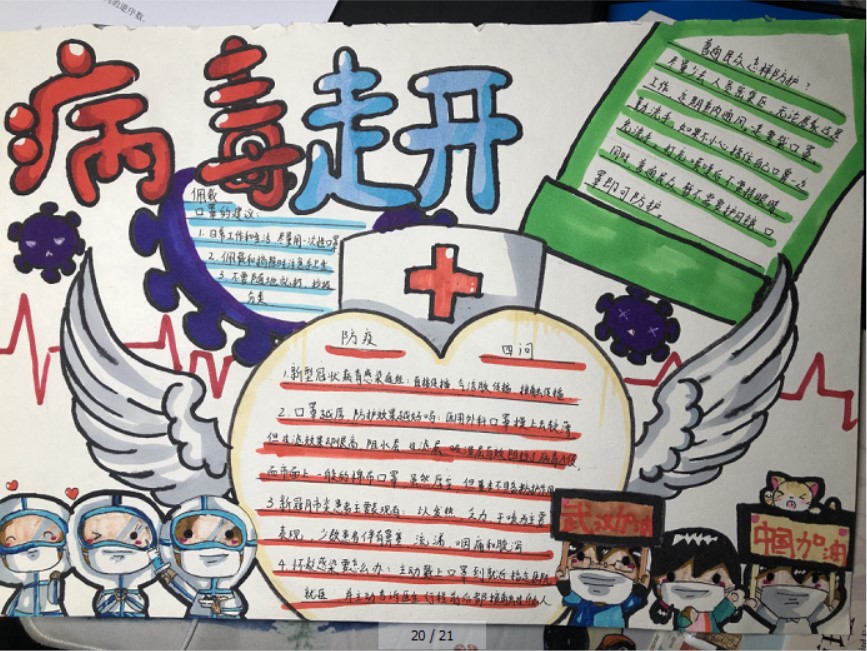 的逆序数.
病毒走开
普通民众怎样防护?
尽量少去人员密集区 无法居家远程
工作 定期室内通风,还要戴口罩
勤洗手,如果不小心
打完喷嚏后不要揉眼睛
同时 普通民众 暂不需要护目镜 口
罩即可防护。
佩戴
口罩的建议:
1. 日常工作和生活 尽量用一次性口罩
2. 佩戴和摘除时注意手卫生
3. 不要随地乱扔,垃圾
分类
防疫 四问
1. 新型冠状病毒感染途径:直接传播 气溶胶传播 接触传播
2. 口罩越厚 防护效果越好吗:医用外科口罩摸上去较薄
但过滤效果却很高,阻水层 过滤层 吸湿层有效阻挡了病毒入侵
而市面上一般的棉布口罩 虽然厚实 但基本不具备防护作用
3. 新冠肺炎患者主要表现有:以发热 乏力 干咳为主要
表现, 少数患者伴有鼻塞 流涕 咽痛和腹泻
4. 怀疑感染要怎么办:主动戴上口罩到就近指定医院
就医 并主动告诉医生行程
武汉加油
中国加油
20 / 21